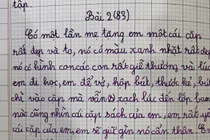 tập.
Bài 2 (83)
Có một lần mẹ tặng em một cái cặp
rất đẹp và to, nó có màu xanh nhạt rất đẹp
nó có hình con các con rất giễ thương và lúc
em đi học, em để vở, hộp bút, thước kẻ, bút
chì vào cặp mà vẫn xach lúc đến lớp.
này cũng nhìn cái cặp sách của em, em rất
cái cặp của em, em sẽ giữ gìn nó cẩn thận